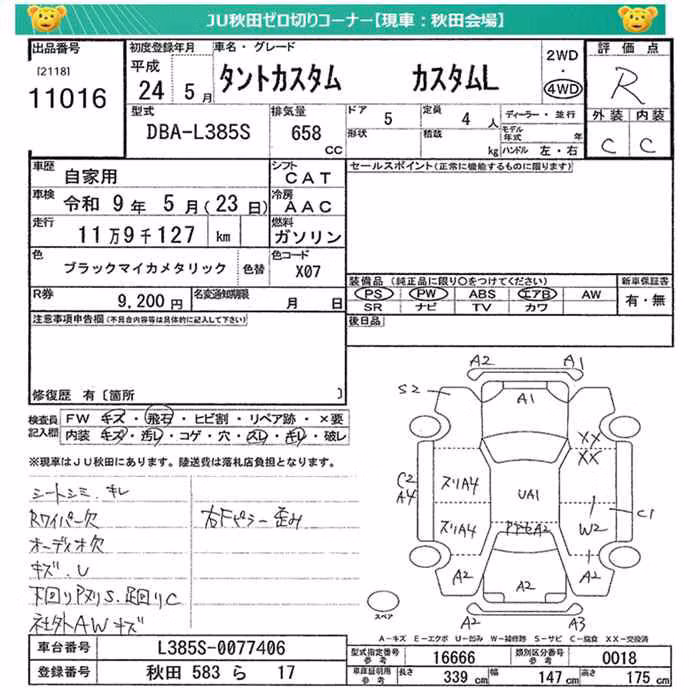 JU秋田ゼロ切りコーナー【現車：秋田会場】
出品番号
[2118]
11016
初度登録年月
平成
24 5月
車名・グレード
タントカスタム カスタムL
2WD
・
4WD
評価点
R
外装 内装
C C
型式
DBA-L385S
排気量
658
CC
ドア
5
定員
4人
形状
積載
kg
ディーラー・並行
モデル年式 年
ハンドル 左・右
車歴
自家用
シフト
CAT
車検
令和 9年 5月(23日)
冷房
AAC
走行
11万9千127 km
燃料
ガソリン
色
ブラックマイカメタリック
色替
色コード
X07
R券
9,200円
名変通知期限
月 日
セールスポイント(正常に機能するものに限ります)
装備品(純正品に限り○をつけてください)
PS PW ABS エアB AW
SR ナビ TV カワ
新車保証書
有・無
後日品
注意事項申告欄(不具合内容等は具体的に記入して下さい)
修復歴 有〔箇所 〕
検査員記入欄
FW キズ・飛石・ヒビ割・リペア跡・×要
内装 キズ・汚レ・コゲ・穴・スレ・キレ・破レ
※現車はJU秋田にあります。陸送費は落札店負担となります。
シートシミ、キレ
Rワイパー欠
右Fピラー歪み
オーディオ欠
キズ、U
下回りPヌリS、足回りC
社外AWキズ
A2 A1
S2
A1
XX
XX
C2
A4
ズリA4
UA1
C1
ズリA4
W2
A2
A2
A2
A2
A3
スペア
A－キズ E－エクボ U－凹み W－補修跡 S－サビ C－腐食 XX－交換済
車台番号
L385S-0077406
登録番号
秋田 583 ら 17
型式指定番号
参考
16666
類別区分番号
参考
0018
車庫証明用
参考
長さ
339 cm
幅
147 cm
高さ
175 cm